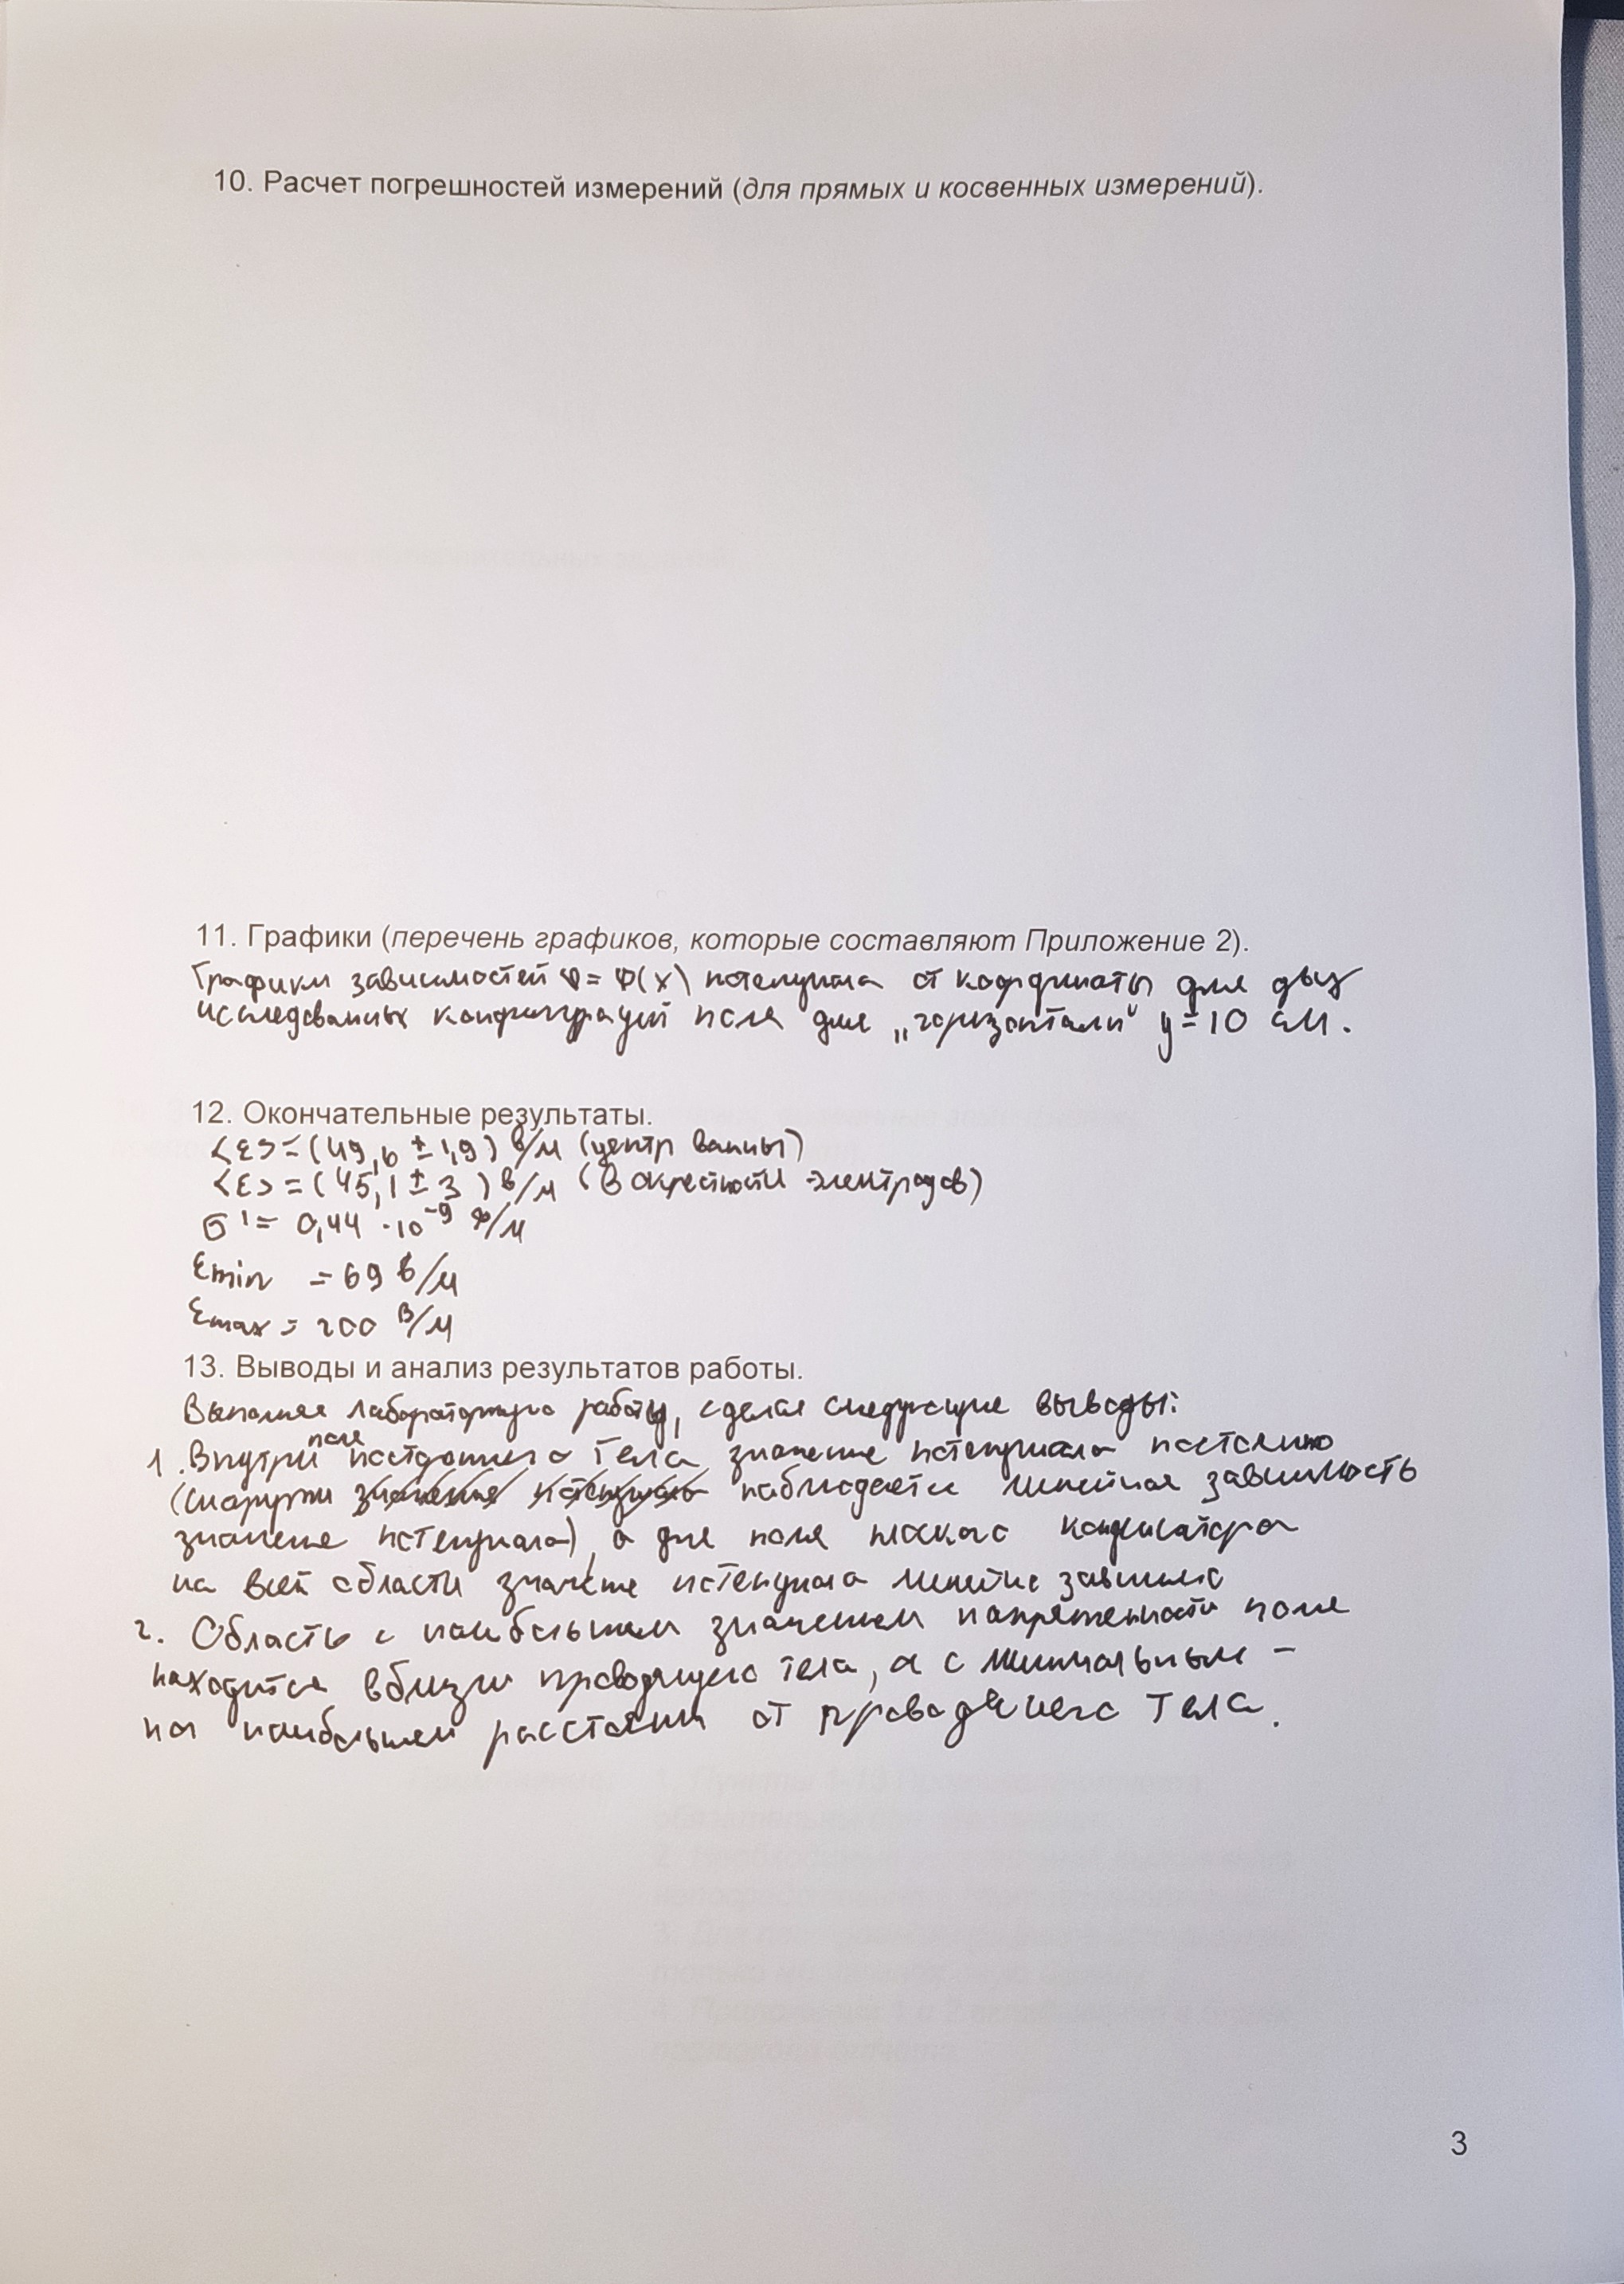 10. Расчет погрешностей измерений (для прямых и косвенных измерений).
11. Графики (перечень графиков, которые составляют Приложение 2).
Графики зависимостей φ = φ(x) потенциала от координаты для двух
исследованных конфигураций поля для „горизонтали" y = 10 см.
12. Окончательные результаты.
<E> = (49,6 ± 1,9) В/м (центр ванны)
<E> = (45,1 ± 3) В/м (в окрестности электродов)
σ' = 0,44 · 10⁻⁹ Ф/м
Emin = 69 В/м
Emax = 200 В/м
13. Выводы и анализ результатов работы.
Выполняя лабораторную работу, сделал следующие выводы:
1. Внутри поля тела значение потенциала постоянно
(снаружи значение потенциала наблюдается линейная зависимость
значение потенциала), а для поля плоского конденсатора
на всей области значение потенциала линейно зависимо
2. Область с наибольшем значением напряженности поля
находится вблизи проводящего тела, а с минимальным –
на наибольшем расстоянии от проводящего тела.
3